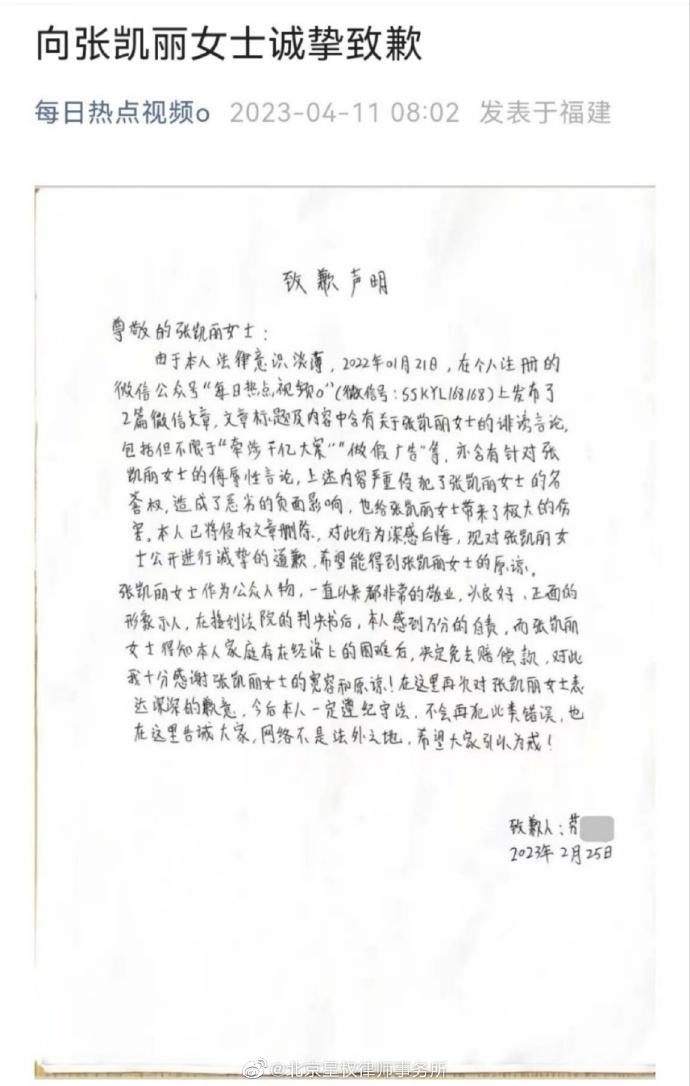 向张凯丽女士诚挚致歉
每日热点视频o 2023-04-11 08:02 发表于福建
致歉声明
尊敬的张凯丽女士：
由于本人法律意识淡薄，2022年01月21日，在个人注册的
微信公众号“每日热点视频o”(微信号：SSKYL168168)上发布了
2篇微信文章，文章标题及内容中含有关于张凯丽女士的诽谤言论，
包括但不限于“牵涉千亿大案”“做假广告”等，亦含有针对张
凯丽女士的侮辱性言论，上述内容严重侵犯了张凯丽女士的名
誉权，造成了恶劣的负面影响，也给张凯丽女士带来了极大的伤
害。本人已将侵权文章删除，对此行为深感后悔，现对张凯丽女
士公开进行诚挚的道歉，希望能得到张凯丽女士的原谅。
张凯丽女士作为公众人物，一直以来都非常的敬业，以良好、正面的
形象示人，在接到法院的判决书后，本人感到万分的自责，而张凯丽
女士得知本人家庭存在经济上的困难后，决定免去赔偿款，对此
我十分感谢张凯丽女士的宽容和原谅！在这里再次对张凯丽女士表
达深深的歉意，今后本人一定遵纪守法，不会再犯此类错误，也
在这里告诫大家，网络不是法外之地，希望大家引以为戒！
致歉人：劳
2023年2月25日
@北京星权律师事务所